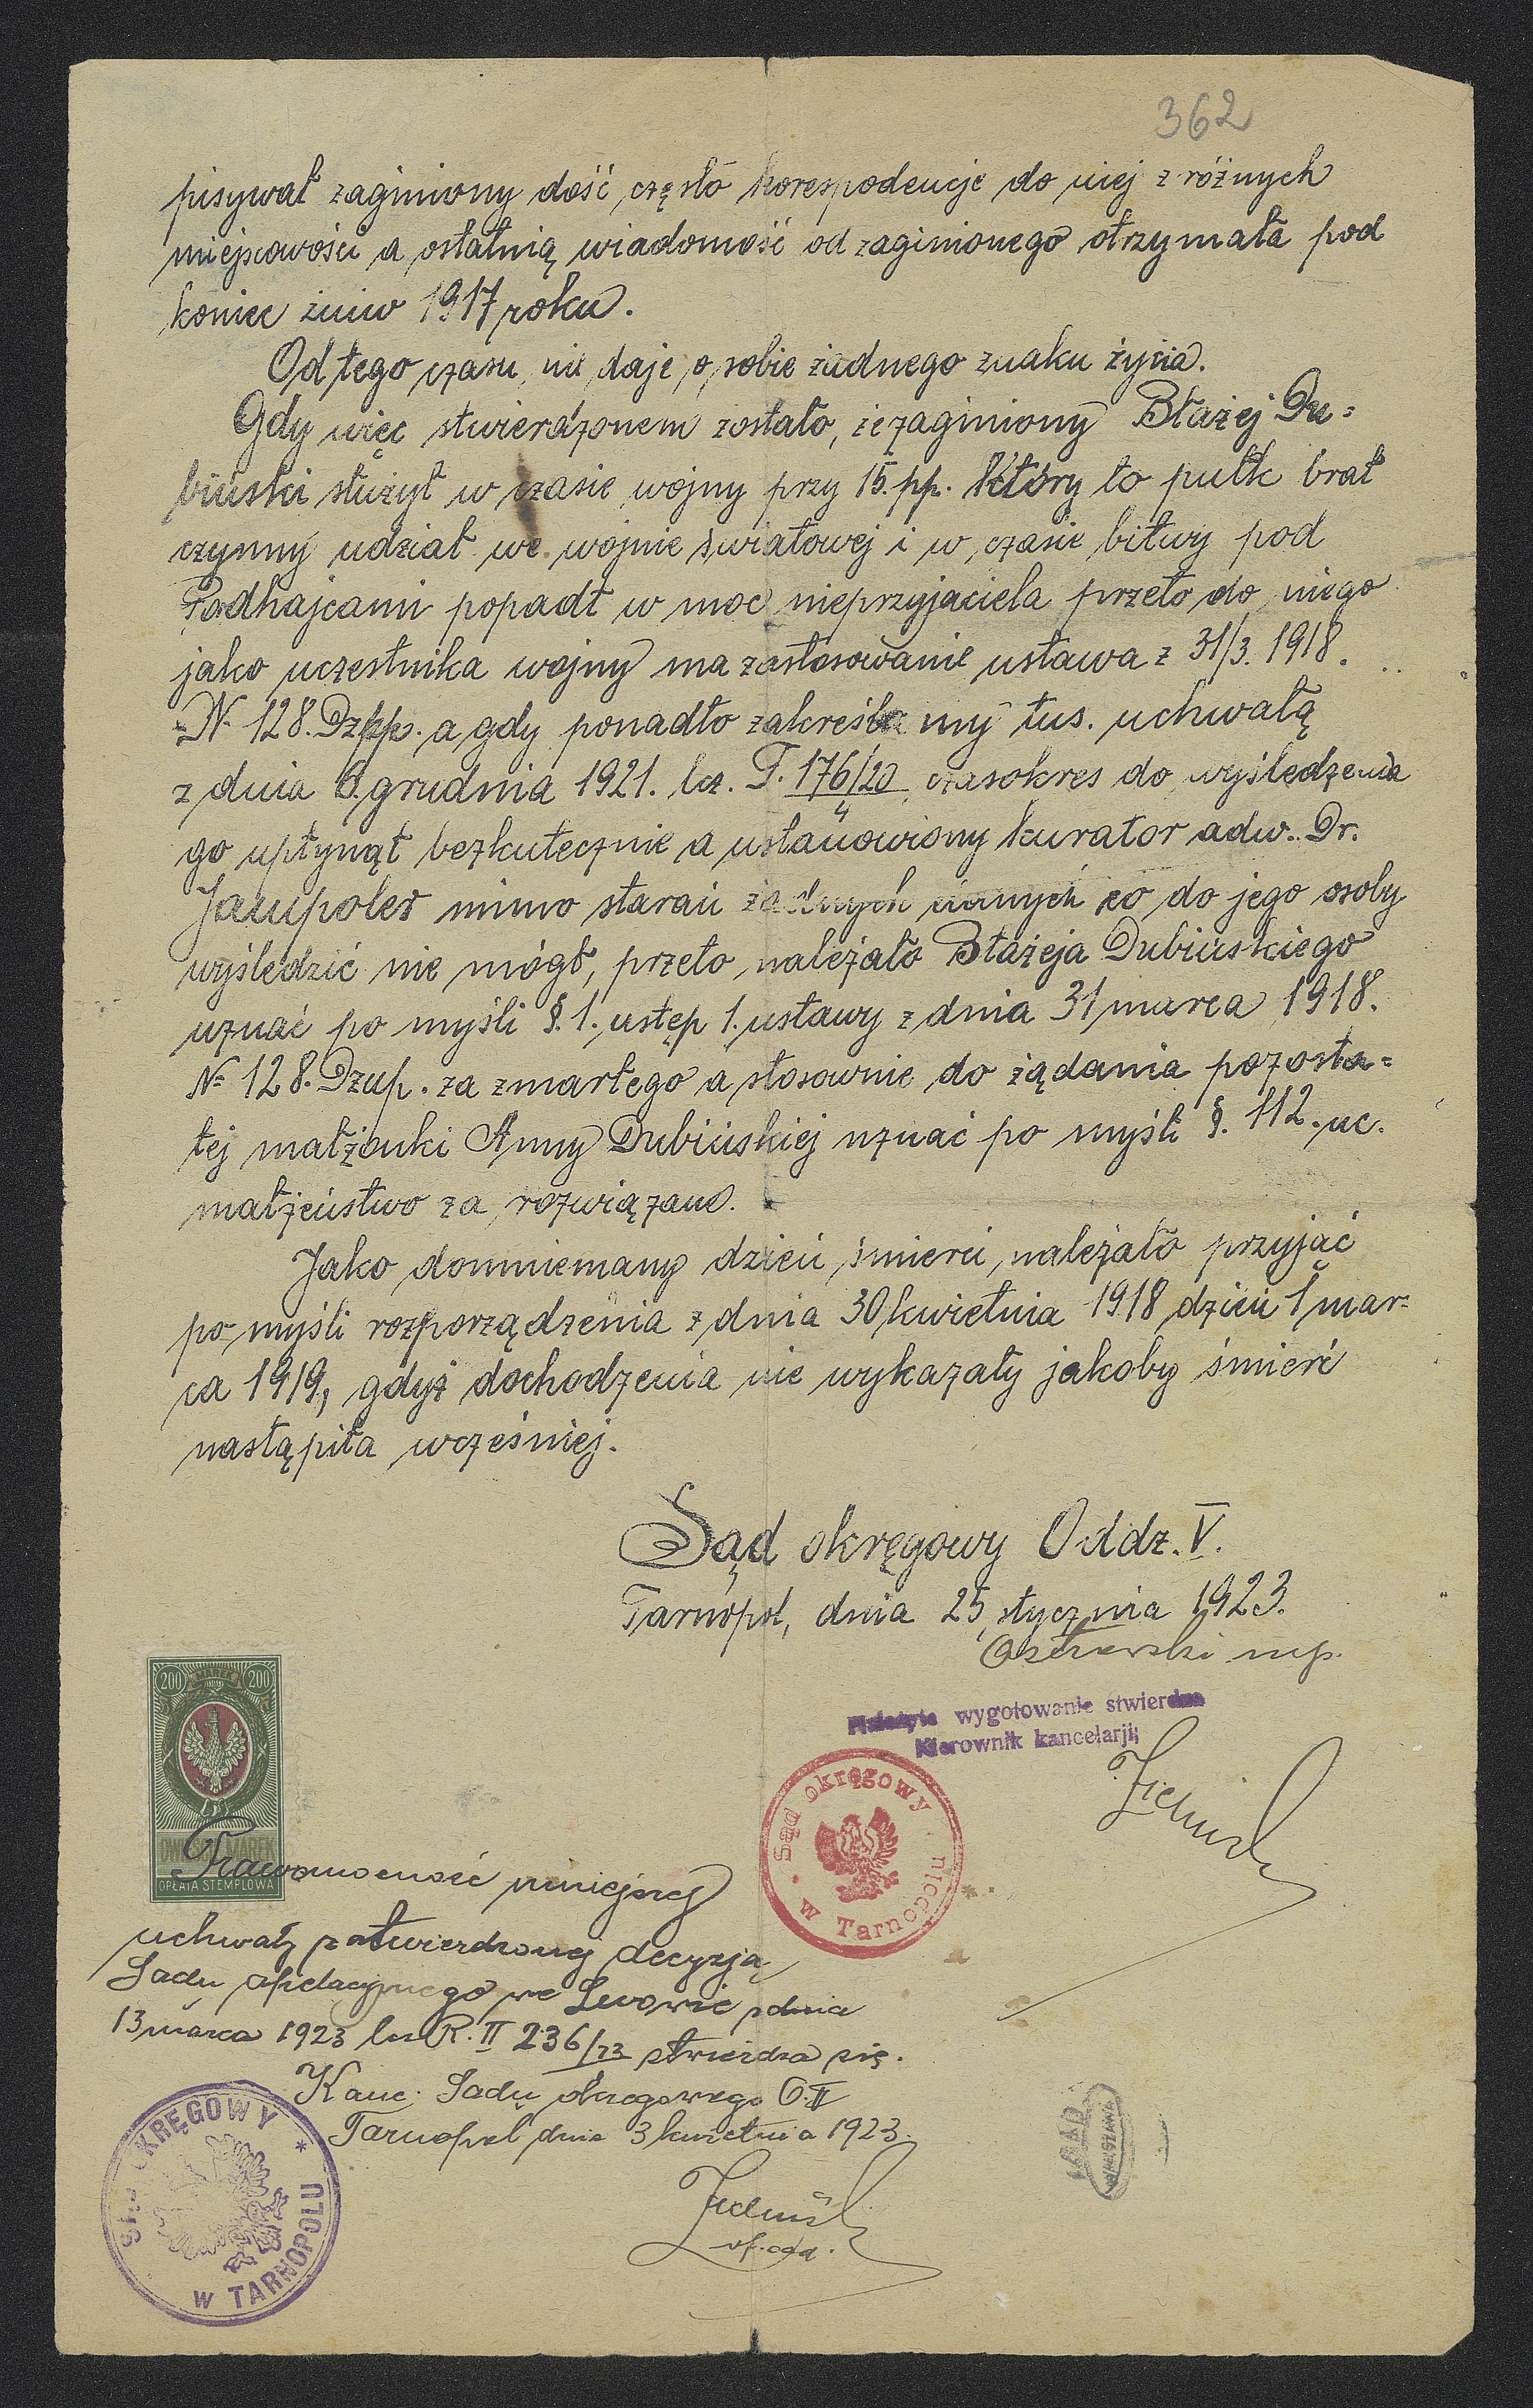 362
pisywał zaginiony dość często korespodencje do niej z różnych
miejscowości a ostatnią wiadomość od zaginionego otrzymała pod
koniec żniw 1917 roku.
Od tego czasu nie daje o sobie żadnego znaku życia.
Gdy więc stwierdzonem zostało, że zaginiony Błażej Du=
biński służył w czasie wojny przy 15. pp. który to pułk brał
czynny udział we wojnie światowej i w czasie bitwy pod
Podhajcami popadł w moc nieprzyjaciela przeto do niego
jako uczestnika wojny ma zastosowanie ustawa z 31/3. 1918.
№ 128. Dzpp. a gdy ponadto zakreślony tus. uchwałą
z dnia 6. grudnia 1921. lcz. T. 176/20 czasokres do wyśledzenia
4
go upłynął bezkutecznie a ustanowiony kurator adw. Dr.
Jampoler mimo starań żadnych danych co do jego osoby
wyśledzić nie mógł, przeto należało Błażeja Dubińskiego
uznać po myśli §. 1. ustęp 1. ustawy z dnia 31 marca 1918.
№ 128. Dzup. za zmarłego a stosownie do żądania pozosta=
łej małżonki Anny Dubińskiej uznać po myśli §. 112. uc.
małżeństwo za rozwiązane.
Jako domniemany dzień śmierci należało przyjąć
po myśli rozporządzenia z dnia 30 kwietnia 1918 dzień 1 mar=
ca 1919, gdyż dochodzenia nie wykazały jakoby śmierć
nastąpiła wcześniej.
Sąd okręgowy Oddz. V.
Tarnopol, dnia 25 stycznia 1923.
mp.
Należyte wygotowanie stwierdza
Kierownik kancelarji:
200 MAREK 200
DWIEŚCIE MAREK
OPŁATA STEMPLOWA
Sąd okręgowy
w Tarnopolu
Prawomocność niniejszej
uchwały zatwierdzonej decyzją
Sadu apelacyjnego we Lwowie z dnia
13 marca 1923 lcz R. II 236/23 stwierdza się.
Kanc. Sadu okregowego O. II
Tarnopol dnia 3 kwietnia 1923.
SĄD OKRĘGOWY *
W TARNOPOLU